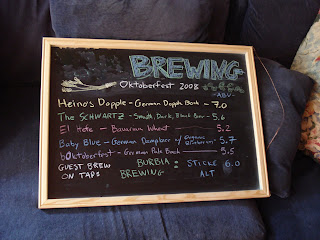 BREWING
Oktoberfest 2008
ABV.
Heino's Dopple - German Dopple Bock - 7.0
The SCHWARTZ - Small, Dark, Black Beer - 5.6
El Hefe - Bavarian Wheat - 5.2
Baby Blue - German Dampbier w/ Organic Blueberries - 5.7
bOktoberfest - German Pale Bock - 5.5
GUEST BREW ON TAP: BURBIA BREWING : STICKE ALT 6.0